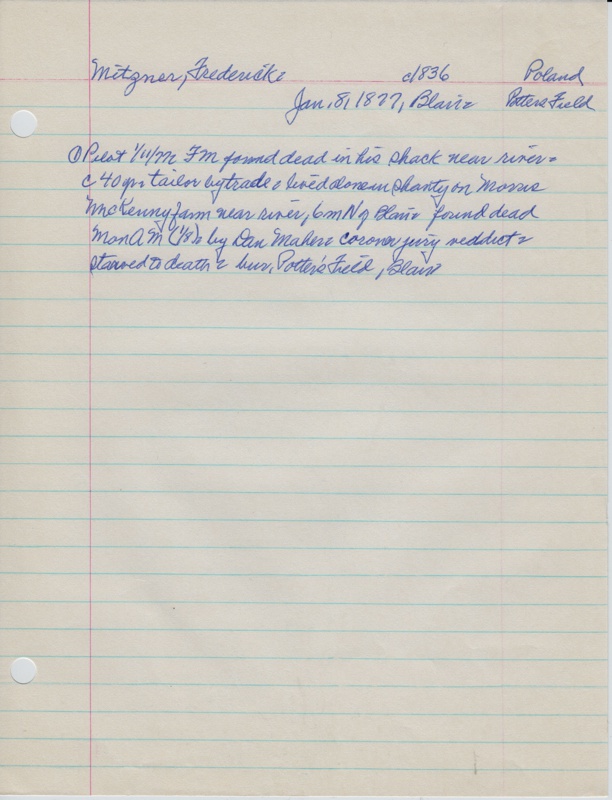 Mitzner, Frederick c1836 Poland
Jan. 8, 1877, Blair Potters Field
① Pilot 1/11/77 FM found dead in his shack near river
c 40 yrs tailor by trade lived alone in shanty on Morris
McKenny farm near river, 6m N of Blair found dead
Mon AM (1/8) by Dan Maher coroner jury verdict
starved to death bur. Potter's Field, Blair